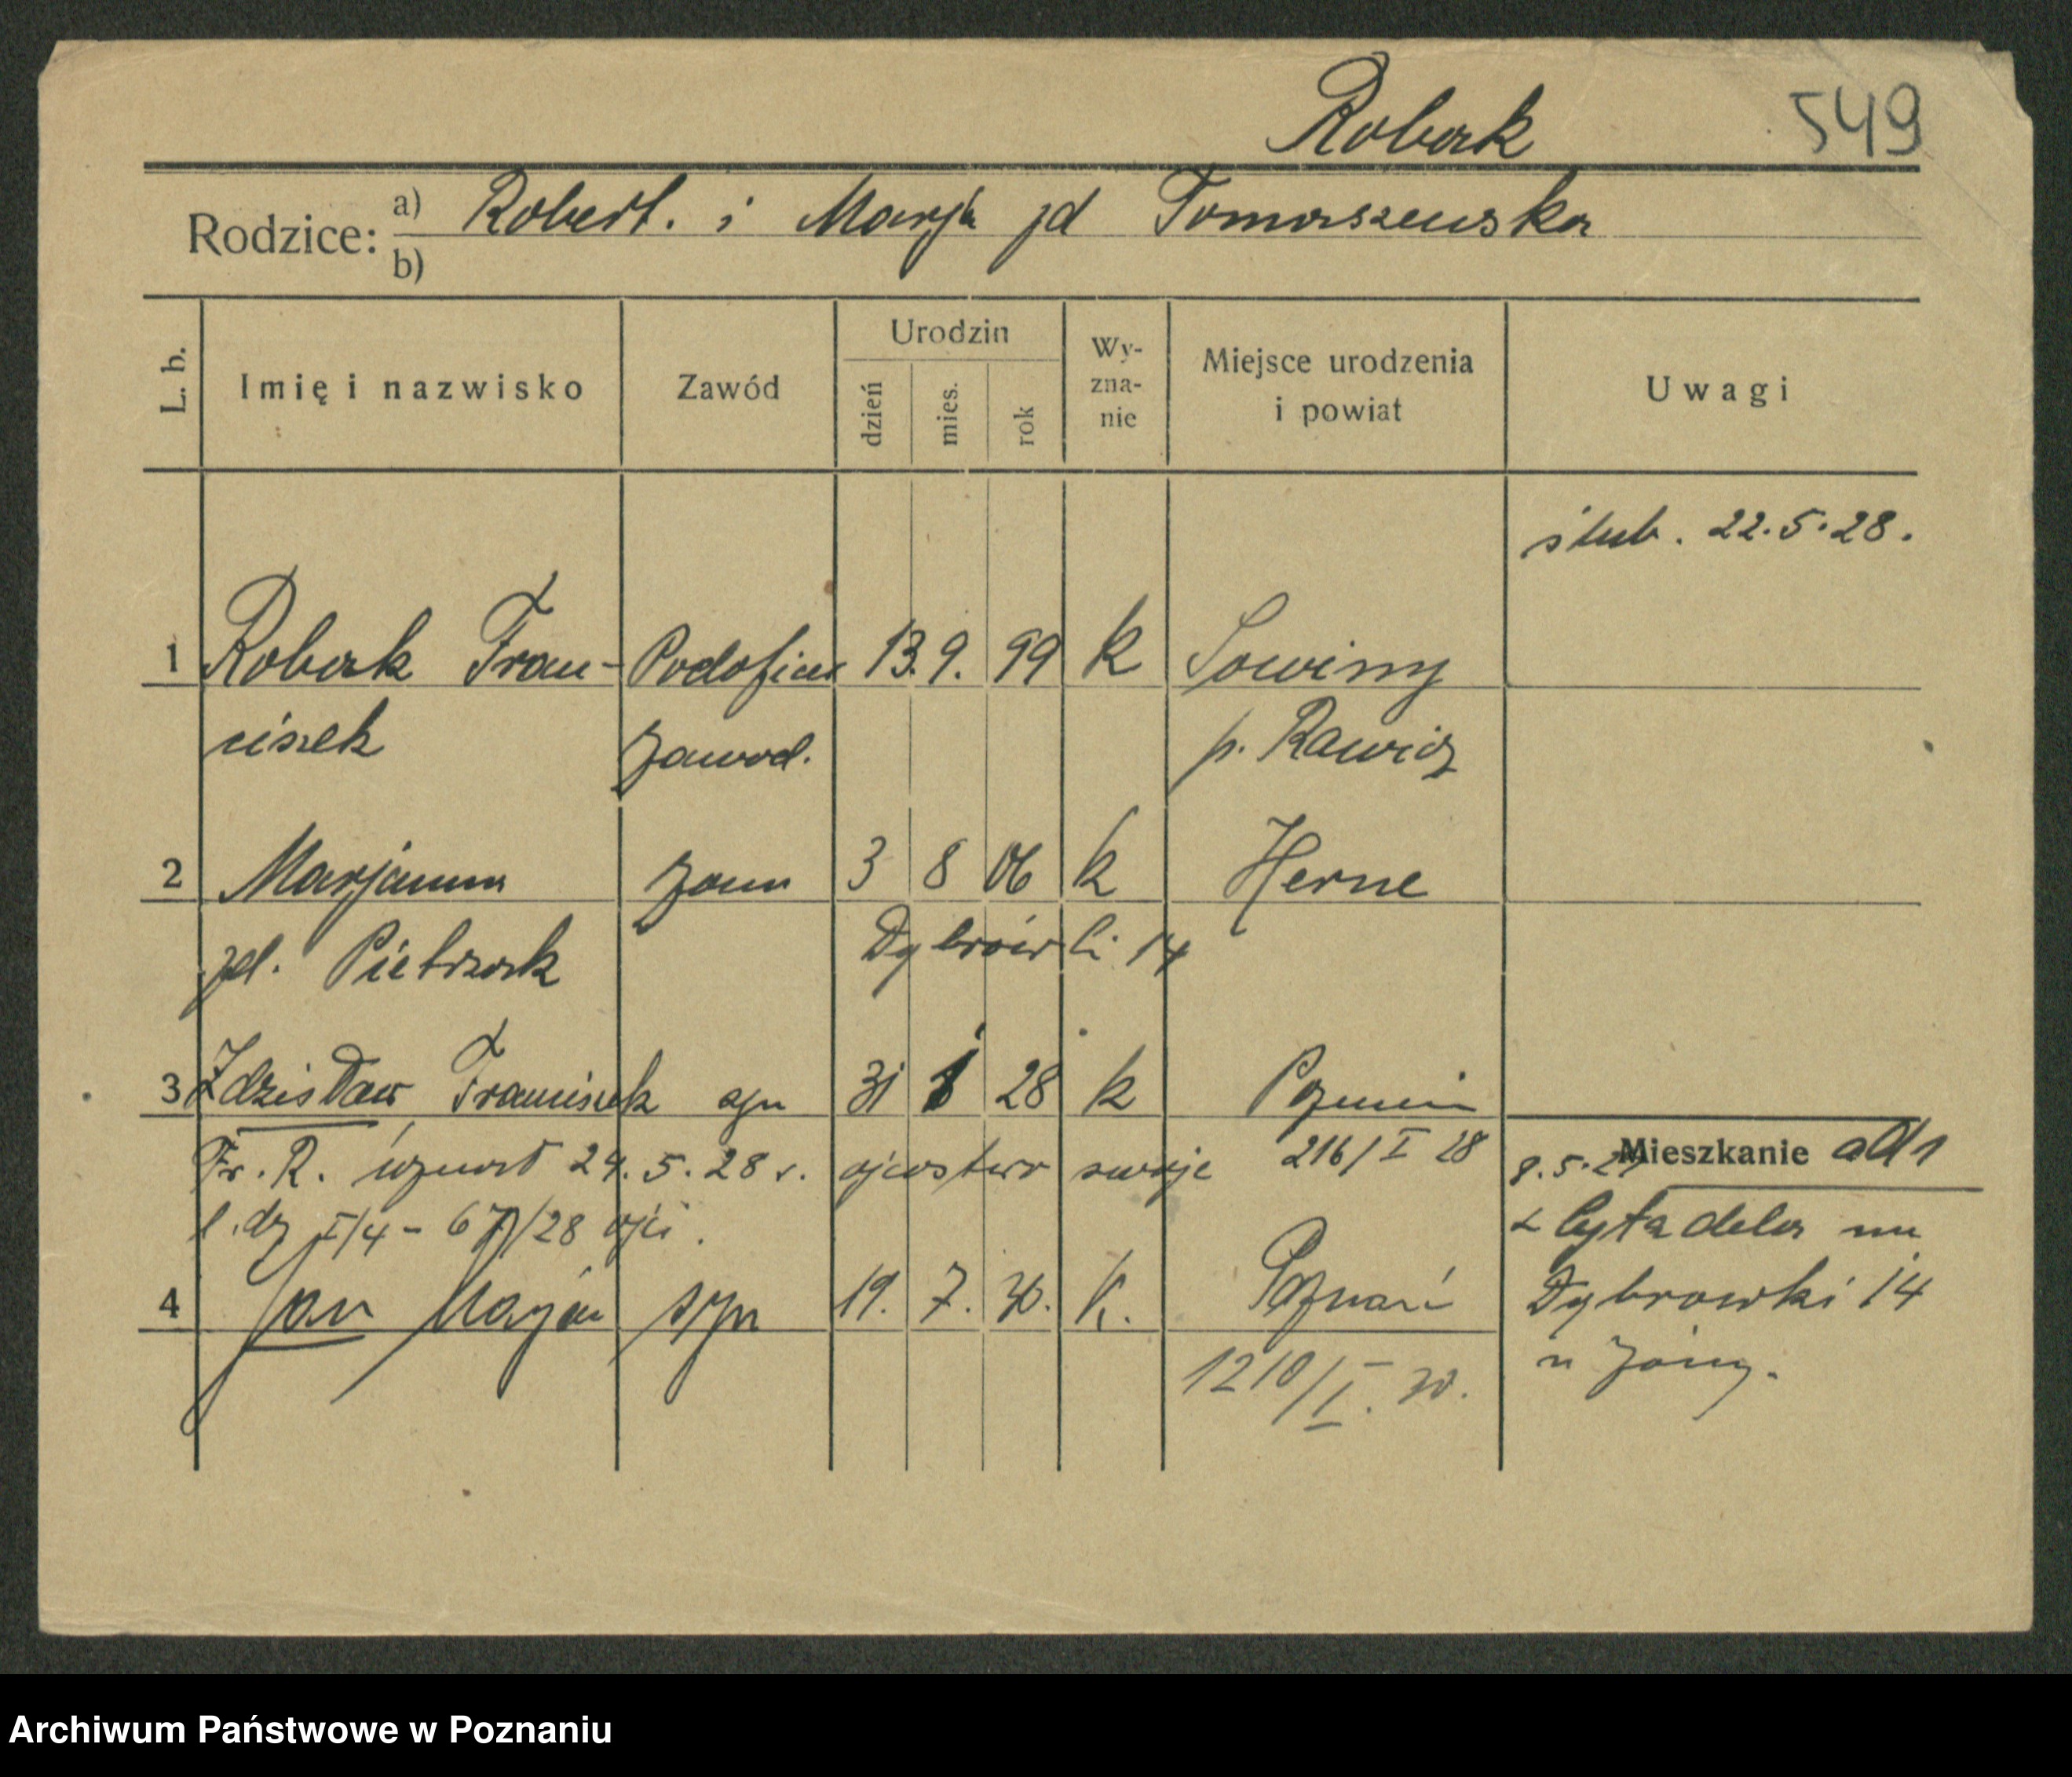 Robak 549
Rodzice: a) Robert. i Marja zd Tomaszewska
b)
L. b. Imię i nazwisko Zawód Urodzin dzień mies. rok Wy-zna-nie Miejsce urodzenia i powiat Uwagi
ślub. 22.5.28.
1 Robak Fran- Podoficer 13. 9. 99 k Sowiny
ciszek zawod. p. Rawicz
2 Marjanna żona 3 8 06 k Herne
zd. Pietrzak Dąbrówki 14
3 Zdzisław Franciszek syn 31 1 28 k Poznań
Fr. R. uznał 24.5.28 r. ojcostwo swoje 216/I 28
l. dz I/4 - 67/28
4 Jan Marjan syn 19. 7. 30. k. Poznań
1210/I. 30.
8.5.29 Mieszkanie
z Cytadela na
Dąbrowki 14
z żoną.
Archiwum Państwowe w Poznaniu